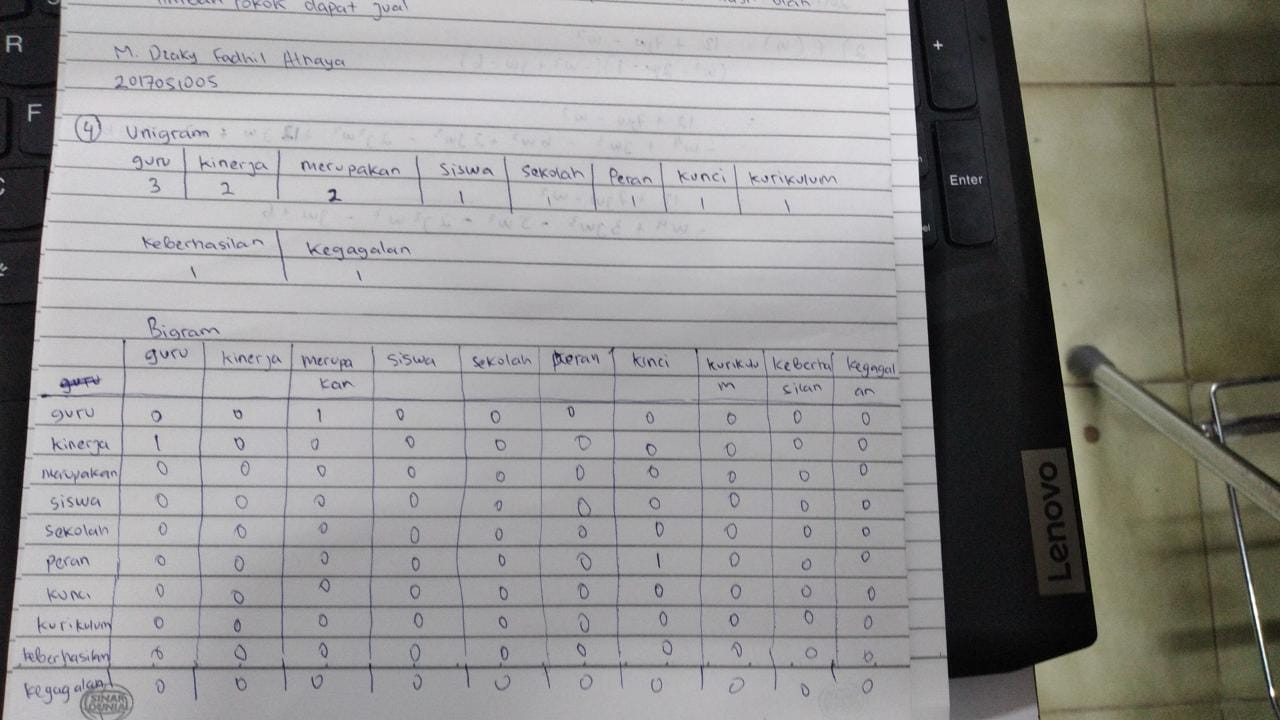 pokok dapat jual
M. Dzaky Fadhil Athaya
2017051005
④ Unigram :
guru kinerja merupakan siswa sekolah Peran kunci kurikulum
3 2 2 1 1 1 1 1
keberhasilan kegagalan
1 1
Bigram
guru kinerja merupa siswa sekolah peran kinci kurikulu keberha kegagal
kan m silan an
guru 0 0 1 0 0 0 0 0 0 0
kinerja 1 0 0 0 0 0 0 0 0 0
merupakan 0 0 0 0 0 0 0 0 0 0
siswa 0 0 0 0 0 0 0 0 0 0
sekolah 0 0 0 0 0 0 0 0 0 0
peran 0 0 0 0 0 0 1 0 0 0
kunci 0 0 0 0 0 0 0 0 0 0
kurikulum 0 0 0 0 0 0 0 0 0 0
keberhasilan 0 0 0 0 0 0 0 0 0 0
kegagalan 0 0 0 0 0 0 0 0 0 0
SINAR
DUNIA
R
F
+
Enter
Lenovo